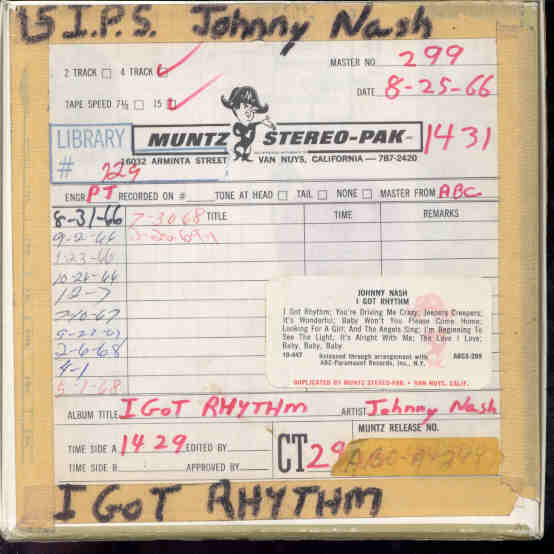 15 I.P.S. Johnny Nash
2 TRACK 4 TRACK
MASTER NO 299
DATE 8-25-66
TAPE SPEED 7½ 15
LIBRARY
# 229
MUNTZ STEREO-PAK
1431
16032 ARMINTA STREET VAN NUYS, CALIFORNIA — 787-2420
ENGR PT RECORDED ON # TONE AT HEAD TAIL NONE MASTER FROM ABC
TITLE TIME REMARKS
8-31-66 7-30 68
9-2-66
1-23-66
10-24-66
12-7
7-10-67
9-22-67
2-6-68
4-1
5-1-68
JOHNNY NASH
I GOT RHYTHM
I Got Rhythm; You're Driving Me Crazy; Jeepers Creepers;
It's Wonderful; Baby Won't You Please Come Home;
Looking For A Girl; And The Angels Sing; I'm Beginning To
See The Light; It's Alright With Me; The Love I Love;
Baby, Baby, Baby
10-447 Released through arrangement with ABCS-299
ABC-Paramount Records, Inc., N.Y.
DUPLICATED BY MUNTZ STEREO-PAK • VAN NUYS, CALIF.
ALBUM TITLE I GOT RHYTHM ARTIST Johnny Nash
TIME SIDE A 14 29 EDITED BY
MUNTZ RELEASE NO.
TIME SIDE B APPROVED BY
CT 29
I GOT RHYTHM